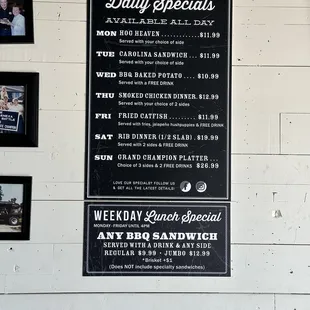 Daily Specials
AVAILABLE ALL DAY
MON HOG HEAVEN ............ $11.99
Served with your choice of side
TUE CAROLINA SANDWICH ... $11.99
Served with your choice of side
WED BBQ BAKED POTATO .... $10.99
Served with a FREE DRINK
THU SMOKED CHICKEN DINNER. $12.99
Served with your choice of 2 sides
FRI FRIED CATFISH .......... $11.99
Served with fries, jalapeño hushpuppies & FREE DRINK
SAT RIB DINNER (1/2 SLAB) . $19.99
Served with 2 sides & FREE DRINK
SUN GRAND CHAMPION PLATTER ...
Choice of 3 sides & 2 FREE DRINKS $26.99
LOVE OUR SPECIALS? FOLLOW US
& GET ALL THE LATEST DETAILS!
WEEKDAY Lunch Special
MONDAY - FRIDAY UNTIL 4PM
ANY BBQ SANDWICH
SERVED WITH A DRINK & ANY SIDE
REGULAR $9.99 - JUMBO $12.99
*Brisket +$1
(Does NOT include specialty sandwiches)